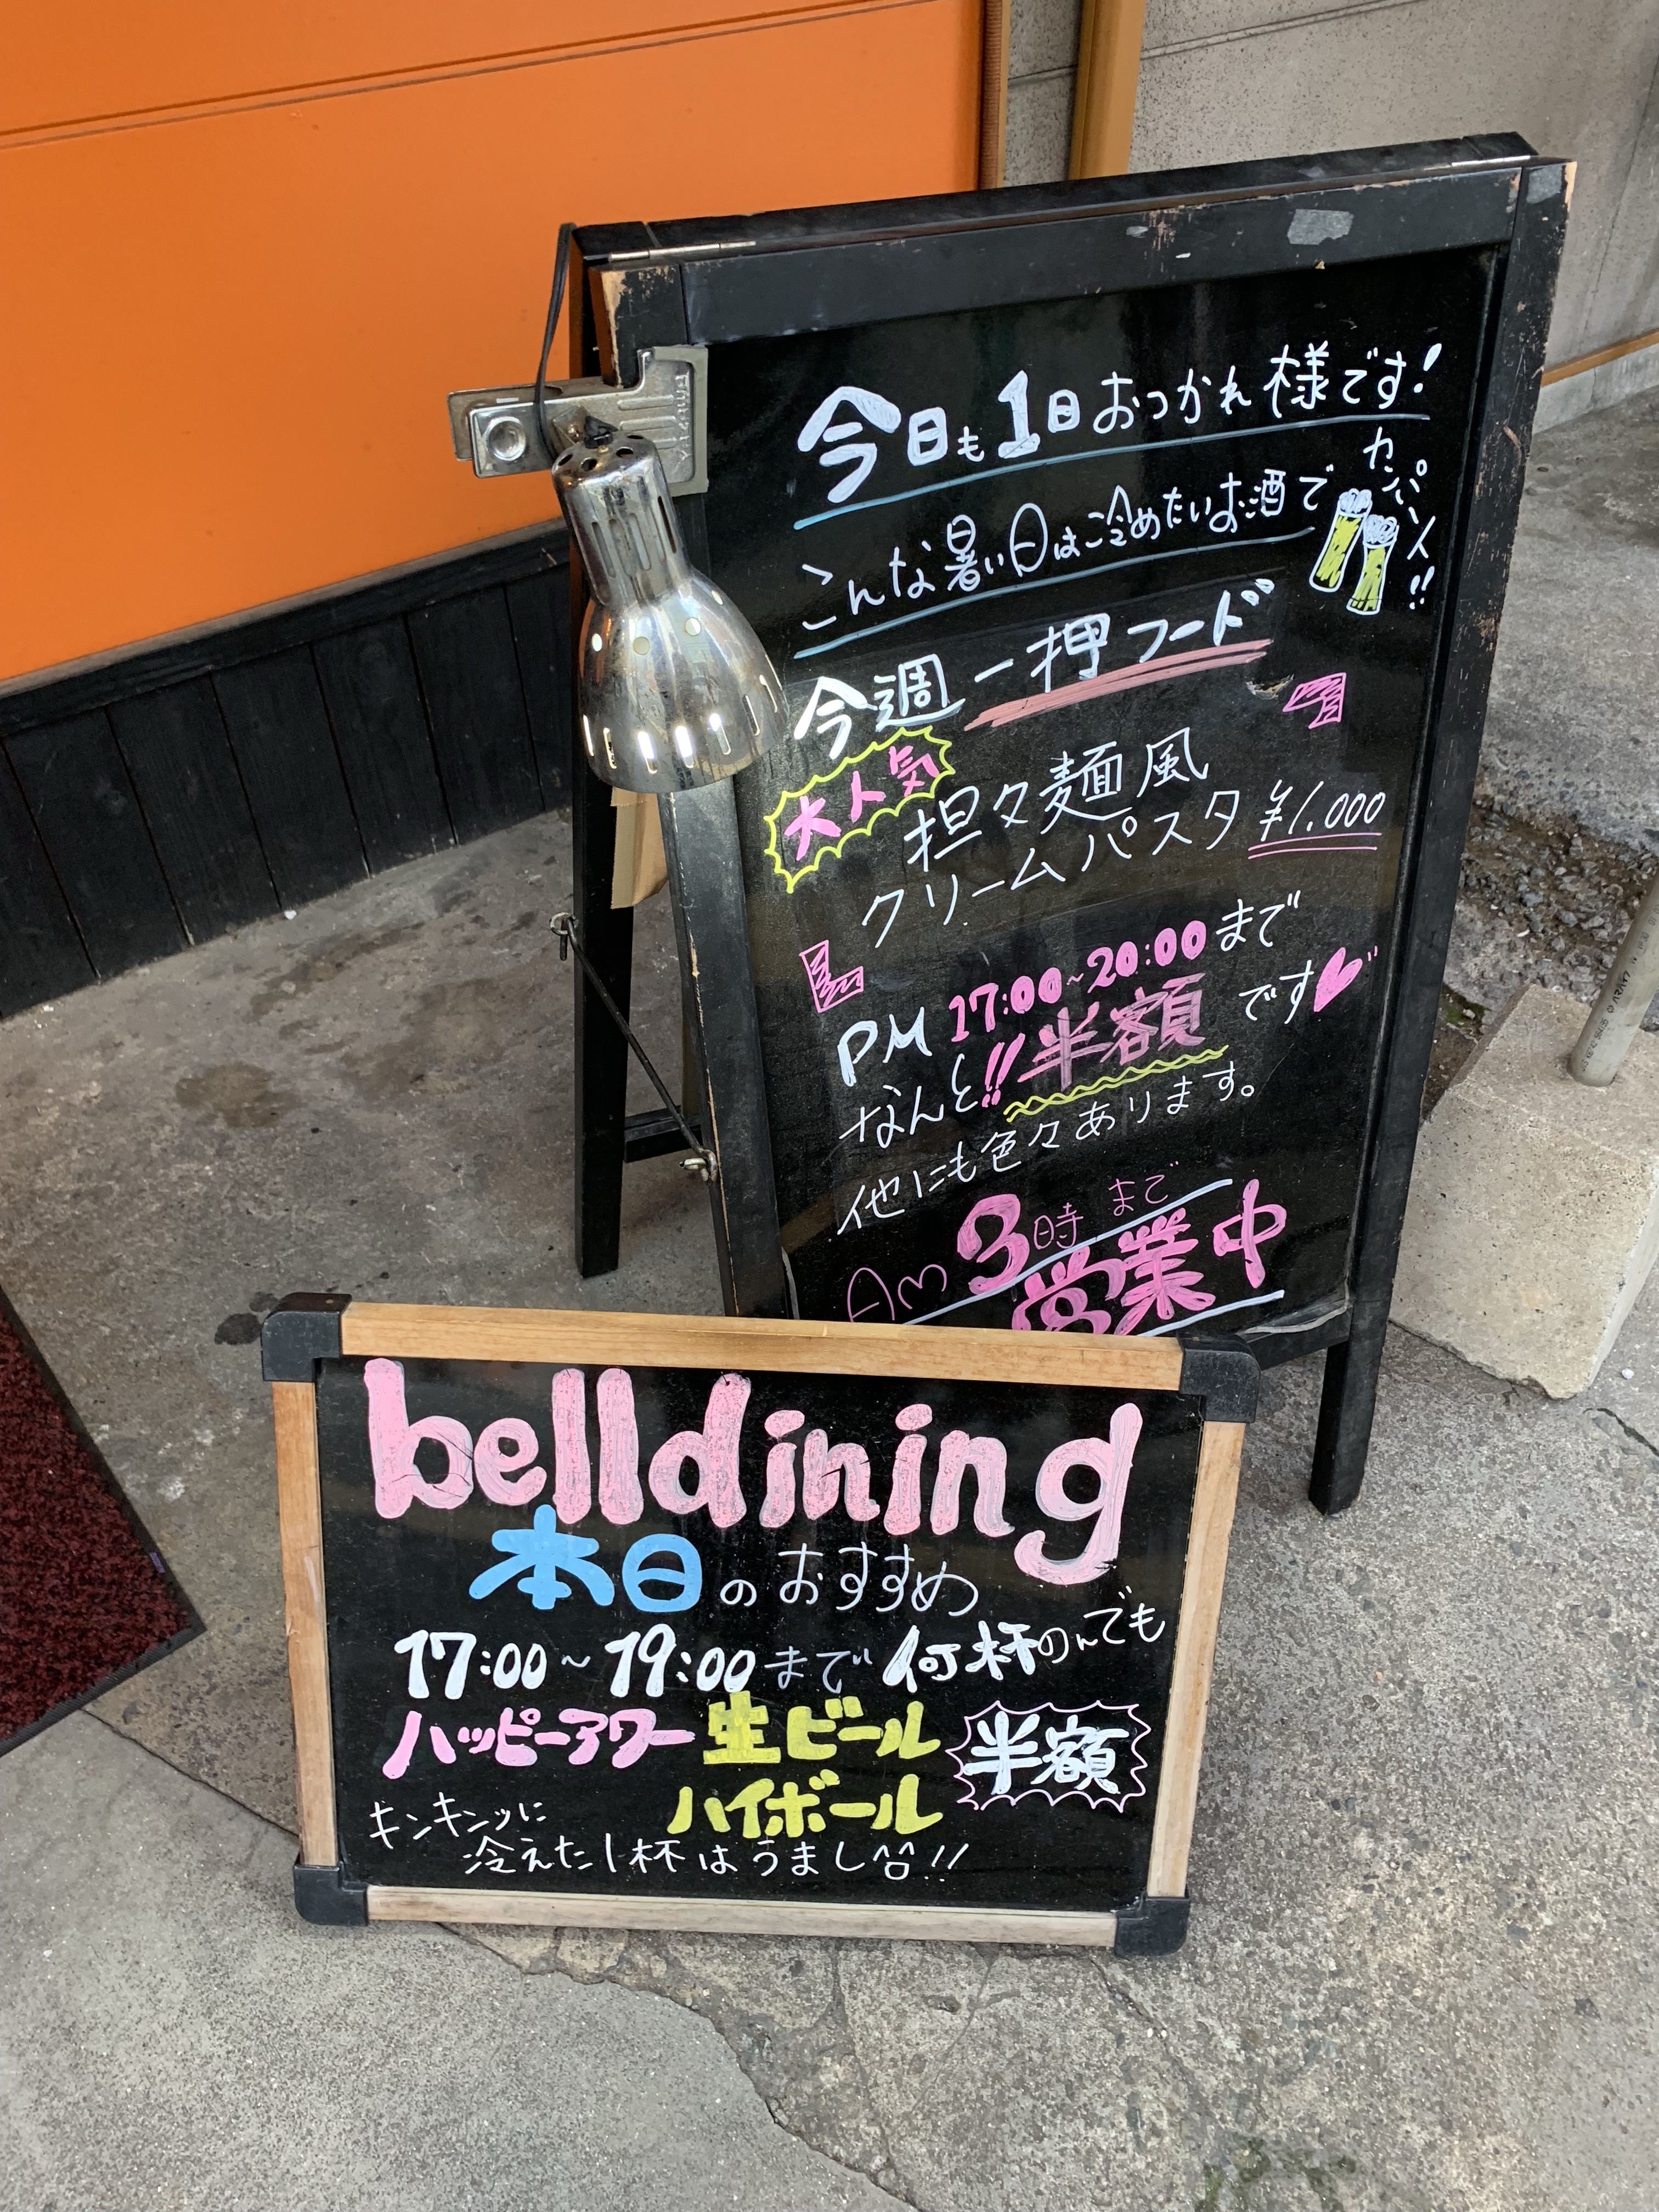 今日も1日おつかれ様です!
こんな暑い日は冷めたいお酒で
カンパイ!!
今週一押フード
大人気
担々麺風
クリームパスタ ¥1.000
PM 17:00~20:00まで
なんと!!半額です
他にも色々あります。
Am 3時まで
営業中
belldining
本日のおすすめ
17:00~19:00まで何杯のんでも
ハッピーアワー 生ビール 半額
ハイボール
キンキンッに
冷えた1杯はうまし!!